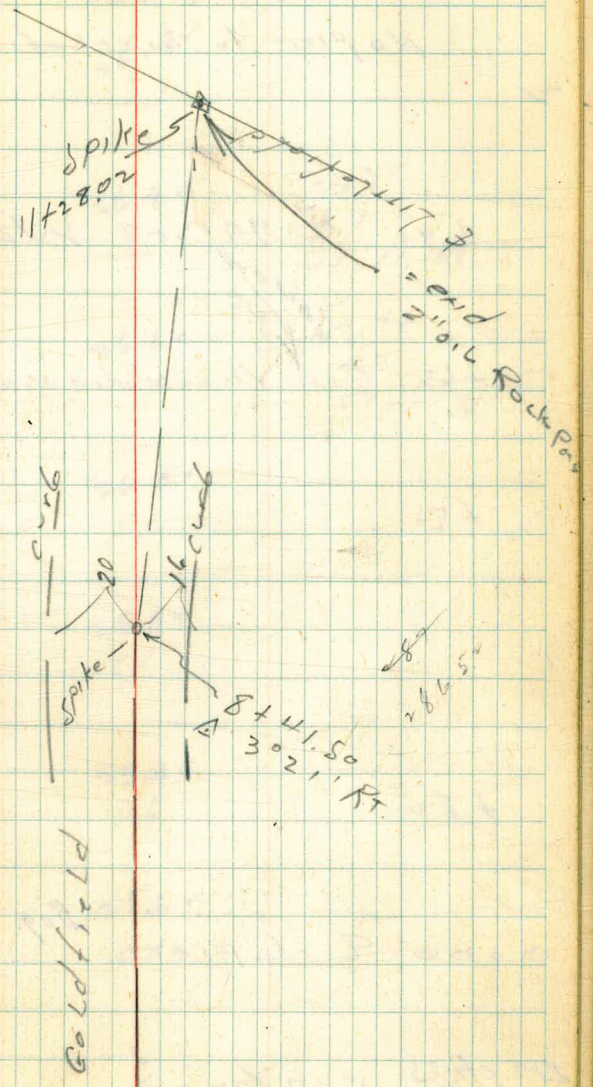 Spike
11+28.02
℄ Littlefield
= end
2" oil Rock Pav
curb
curb
20
16
Spike
△ 8+41.50
3°21' Rt.
286.52
Goldfield